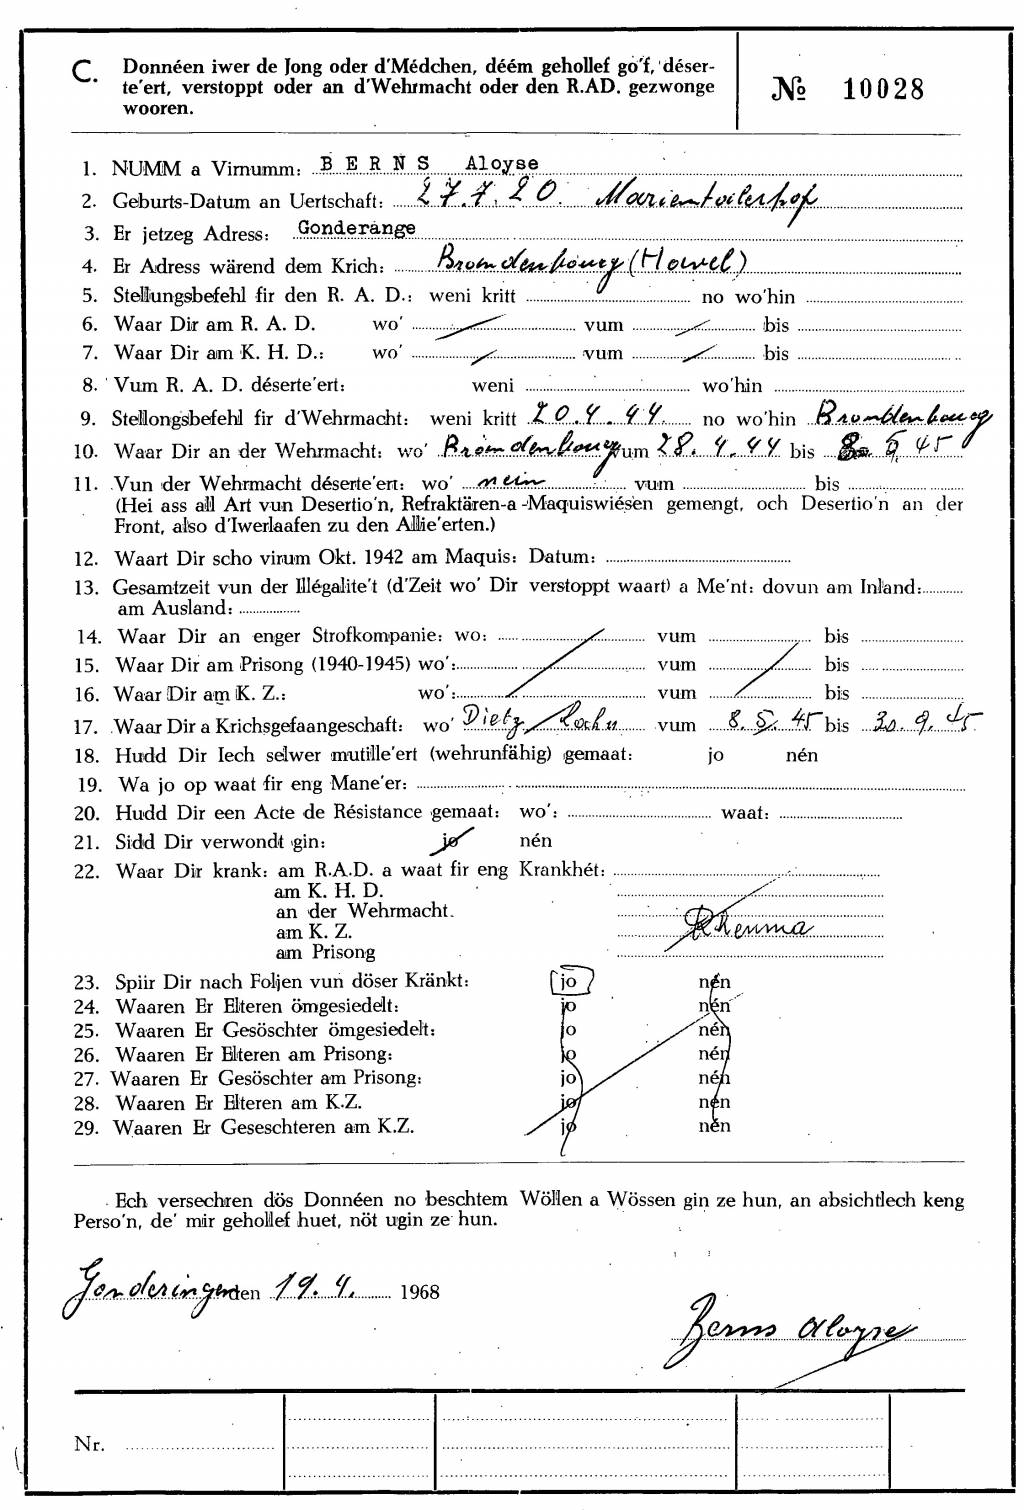 C. Donnéen iwer de Jong oder d'Médchen, déém gehollef go'f, déser-
te'ert, verstoppt oder an d'Wehrmacht oder den R.AD. gezwonge
wooren.
№ 10028
1. NUMM a Virnumm: BERNS Aloyse
2. Geburts-Datum an Uertschaft: 27.7.20. Marientvilerhof
3. Er jetzeg Adress: Gonderange
4. Er Adress wärend dem Krich: Brondenbourg (Howel)
5. Stellungsbefehl fir den R. A. D.: weni kritt no wo'hin
6. Waar Dir am R. A. D. wo' vum bis
7. Waar Dir am K. H. D.: wo' vum bis
8. Vum R. A. D. déserte'ert: weni wo'hin
9. Stellongsbefehl fir d'Wehrmacht: weni kritt 20.4.44. no wo'hin Brondenbourg
10. Waar Dir an der Wehrmacht: wo' Brondenbourg vum 28.4.44 bis 8. 5. 45
11. Vun der Wehrmacht déserte'ert: wo' nein vum bis
(Hei ass all Art vun Desertio'n, Refraktären-a-Maquiswiésen gemengt, och Desertio'n an der
Front, also d'Iwerlaafen zu den Allie'erten.)
12. Waart Dir scho virum Okt. 1942 am Maquis: Datum:
13. Gesamtzeit vun der Illégalite't (d'Zeit wo' Dir verstoppt waart) a Me'nt: dovun am Inland:
am Ausland:
14. Waar Dir an enger Strofkompanie: wo: vum bis
15. Waar Dir am Prisong (1940-1945) wo': vum bis
16. Waar Dir am K. Z.: wo': vum bis
17. Waar Dir a Krichsgefaangeschaft: wo' Dietz / vum 8. 5. 45 bis 30. 9. 45
18. Hudd Dir Iech selwer mutille'ert (wehrunfähig) gemaat: jo nén
19. Wa jo op waat fir eng Mane'er:
20. Hudd Dir een Acte de Résistance gemaat: wo': waat:
21. Sidd Dir verwondt gin: jo nén
22. Waar Dir krank: am R.A.D. a waat fir eng Krankhét:
am K. H. D.
an der Wehrmacht.
am K. Z. Rheuma
am Prisong
23. Spiir Dir nach Foljen vun döser Kränkt: jo nén
24. Waaren Er Elteren ömgesiedelt: jo nén
25. Waaren Er Gesöschter ömgesiedelt: jo nén
26. Waaren Er Elteren am Prisong: jo nén
27. Waaren Er Gesöschter am Prisong: jo nén
28. Waaren Er Elteren am K.Z. jo nén
29. Waaren Er Geseschteren am K.Z. jo nén
Ech versechren dös Donnéen no beschtem Wöllen a Wössen gin ze hun, an absichtlech keng
Perso'n, de' mir gehollef huet, nöt ugin ze hun.
Gonderingen den 19. 4. 1968
Berns Aloyse
Nr.